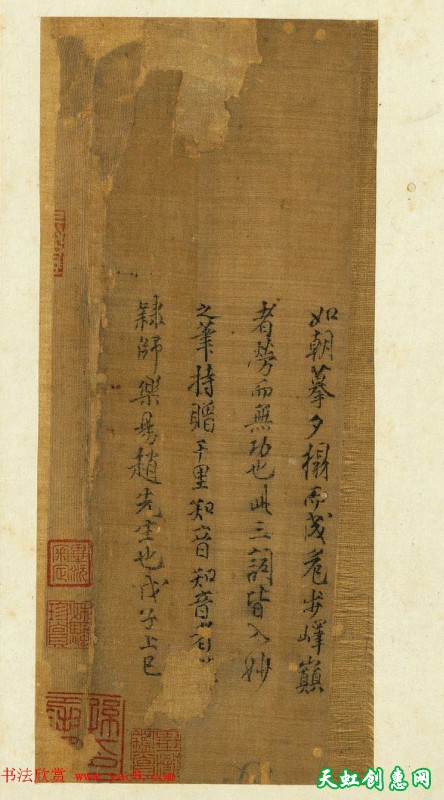 如朝摹夕搨而成危步嶧巔
者勞而無功也此三詞皆入妙
之筆持贈千里知音知音
隸師樂易趙先生也戊子上巳
书法欣赏
天虹创惠网